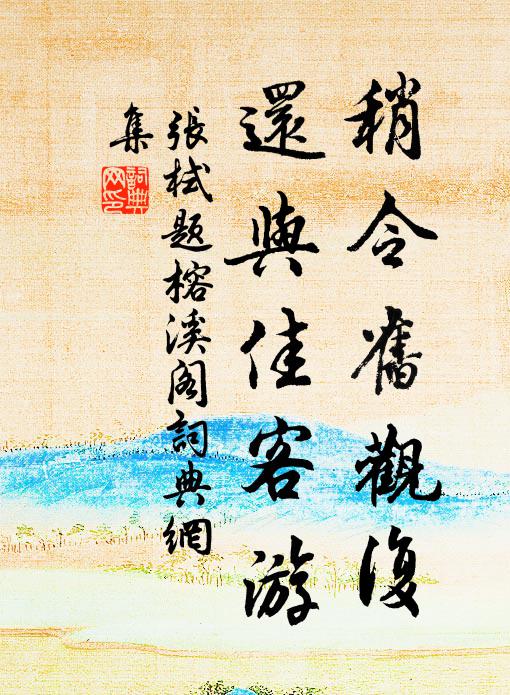 稍令舊觀復
還與佳客游
張栻題榕溪閣詞典網
集
詞典
网印